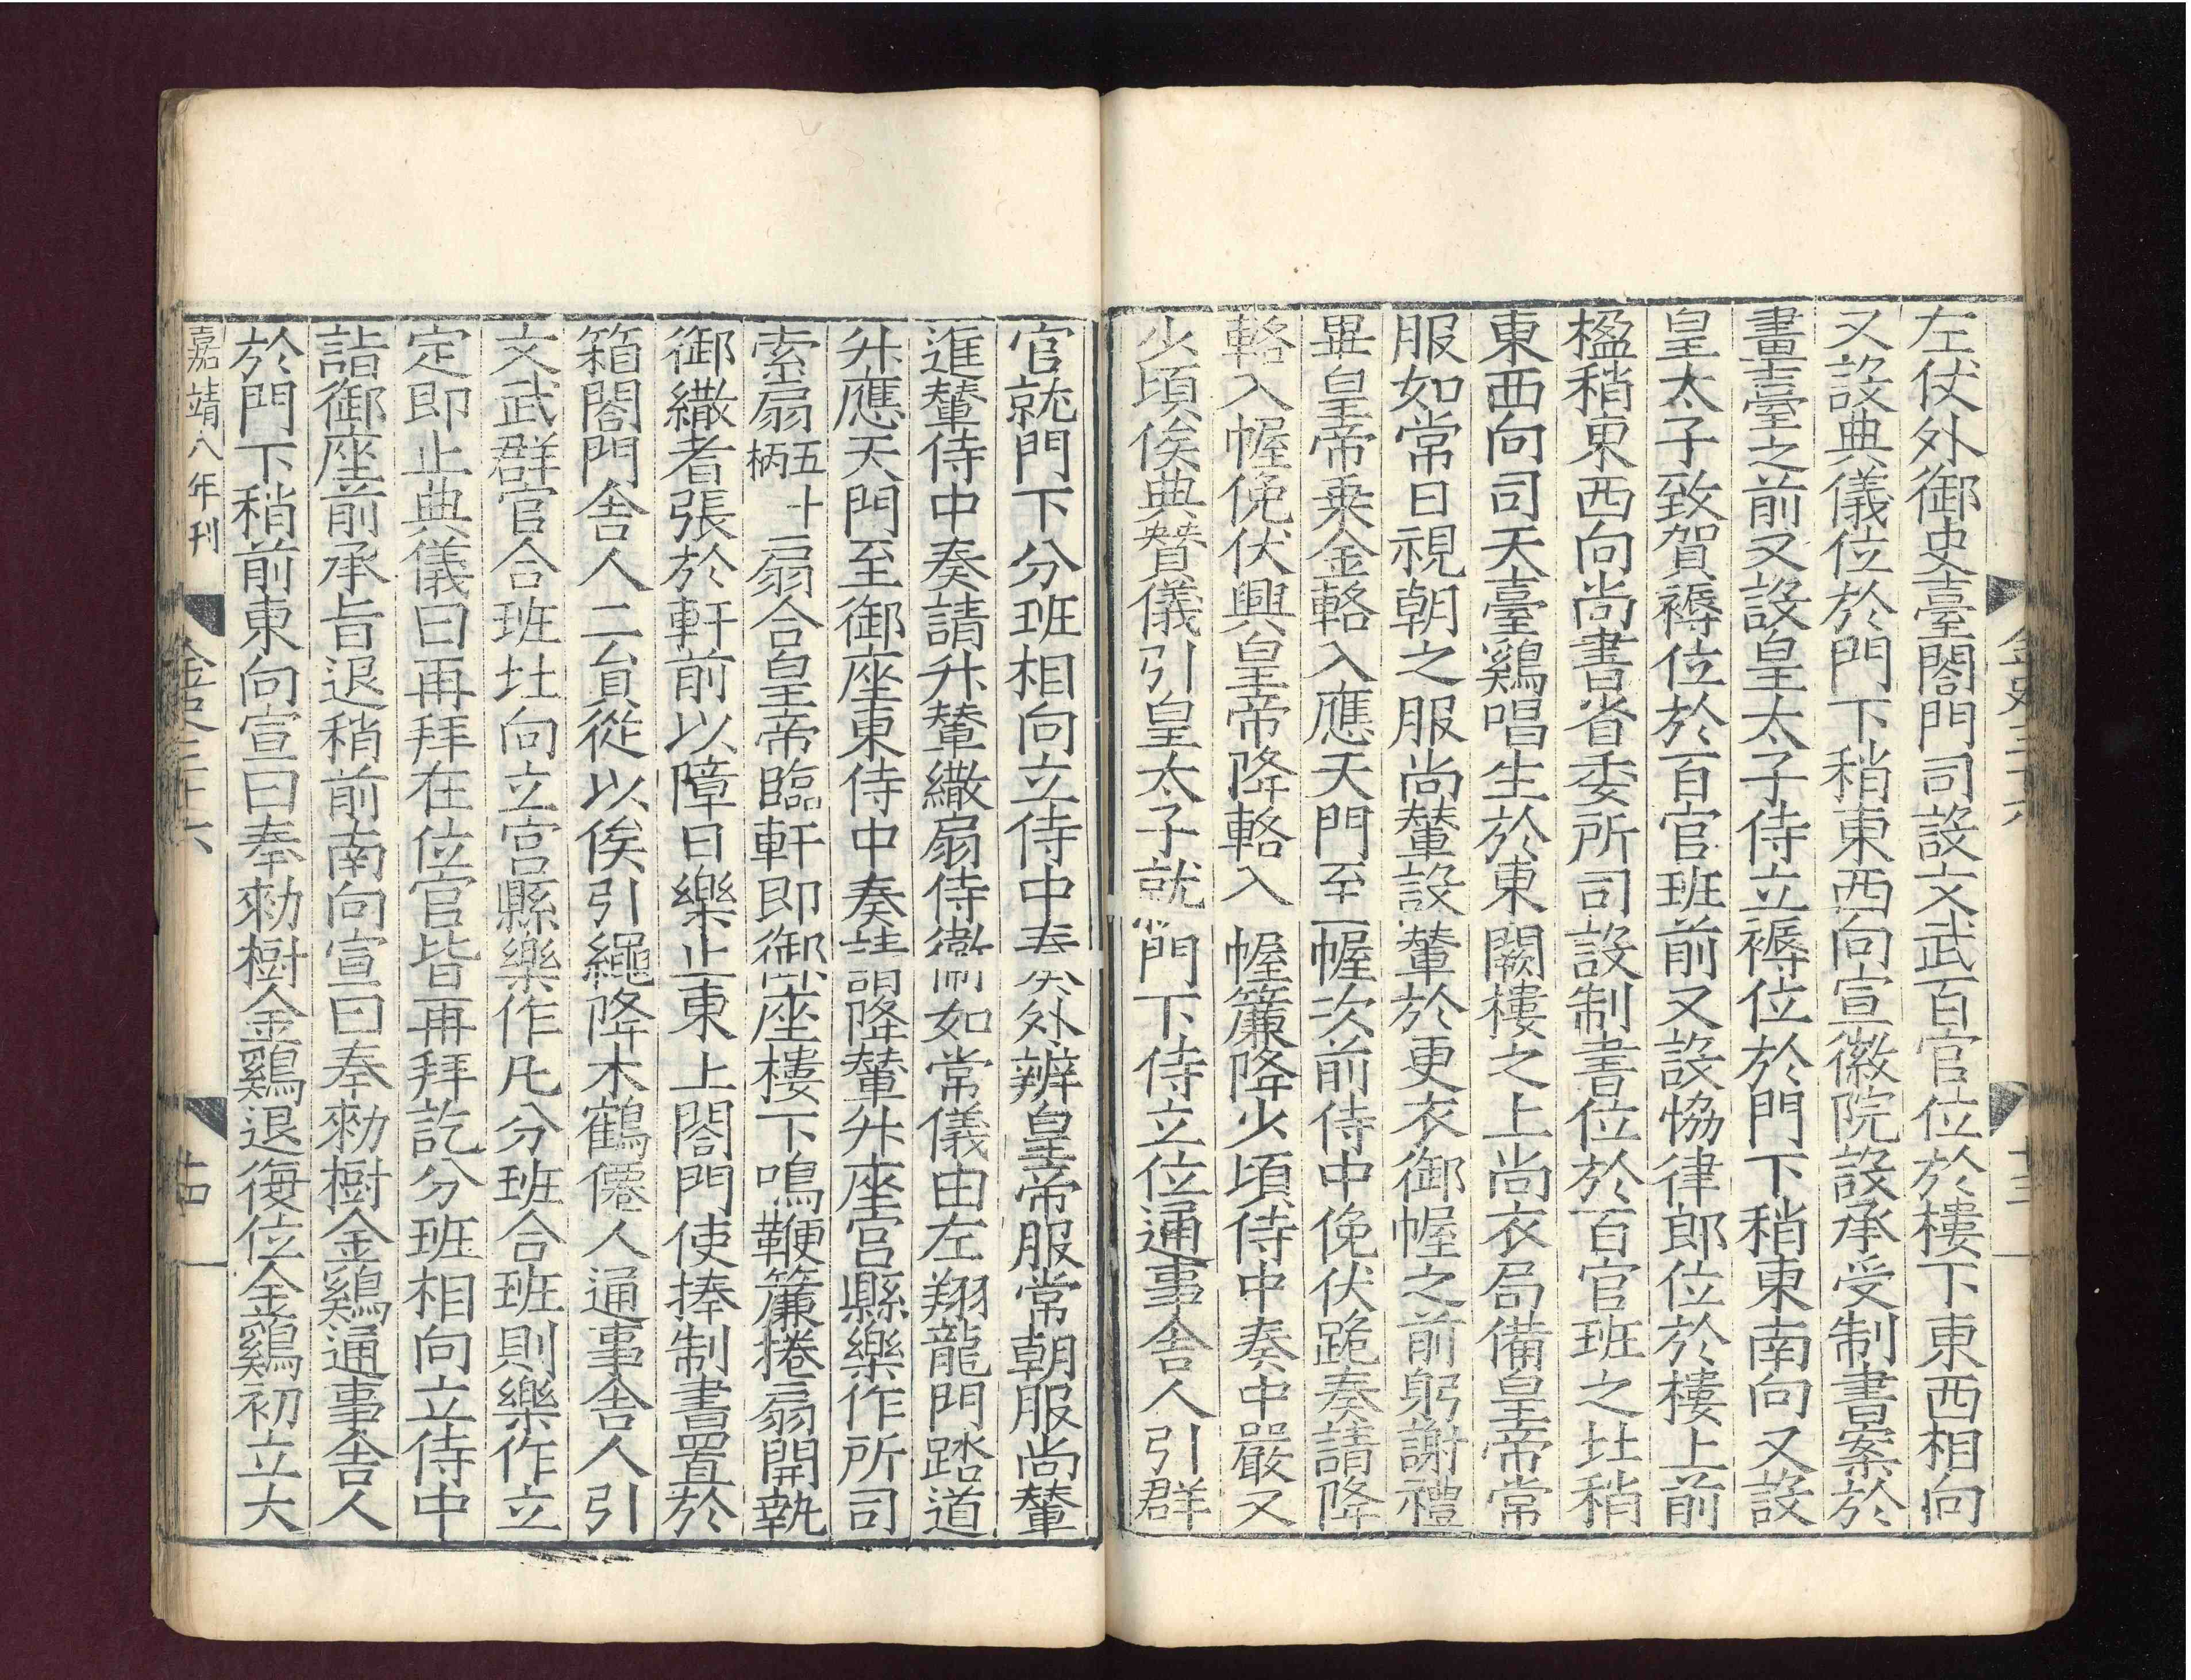 左仗外御史臺閤門司設文武百官位於樓下東西相向
又設典儀位於門下稍東西向宣徽院設承受制書案於
畫臺之前又設皇太子侍立褥位於門下稍東南向又設
皇太子致賀褥位於百官班前又設恊律郎位於樓上前
楹稍東西向尚書省委所司設制書位於百官班之北稍
東西向司天臺鷄唱生於東闕樓之上尚衣局備皇帝常
服如常日視朝之服尚輦設輦於更衣御幄之前躬謝禮
畢皇帝乗金輅入應天門至幄次前侍中俛伏跪奏請降
輅入幄俛伏興皇帝降輅入幄簾降少頃侍中奏中嚴又
少頃俟典贊儀引皇太子就門下侍立位通事舍人引群
金史三十六
十三
官就門下分班相向立侍中奏外辦皇帝服常朝服尚輦
進輦侍中奏請升輦繖扇侍衛如常儀由左翔龍門踏道
升應天門至御座東侍中奏請降輦升座宮縣樂作所司
索扇五十柄扇合皇帝臨軒即御座樓下鳴鞭簾捲扇開執
御繖者張於軒前以障日樂止東上閤門使捧制書置於
箱閤門舍人二員從以俟引繩降木鶴僊人通事舍人引
文武群官合班北向立宮縣樂作凡分班合班則樂作立
定即止典儀曰再拜在位官皆再拜訖分班相向立侍中
詣御座前承旨退稍前南向宣曰奉勑樹金鷄通事舍人
於門下稍前東向宣曰奉勑樹金鷄退復位金鷄初立大
嘉靖八年刊
金史三十六
十四